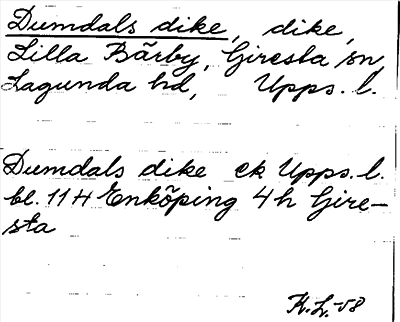 Dumdals dike, dike,
Lilla Bärby, Giresta sn,
Lagunda hd, Upps. l.
Dumdals dike ek Upps. l.
bl. 11 H Enköping 4h Gire-
sta
K.L. -58